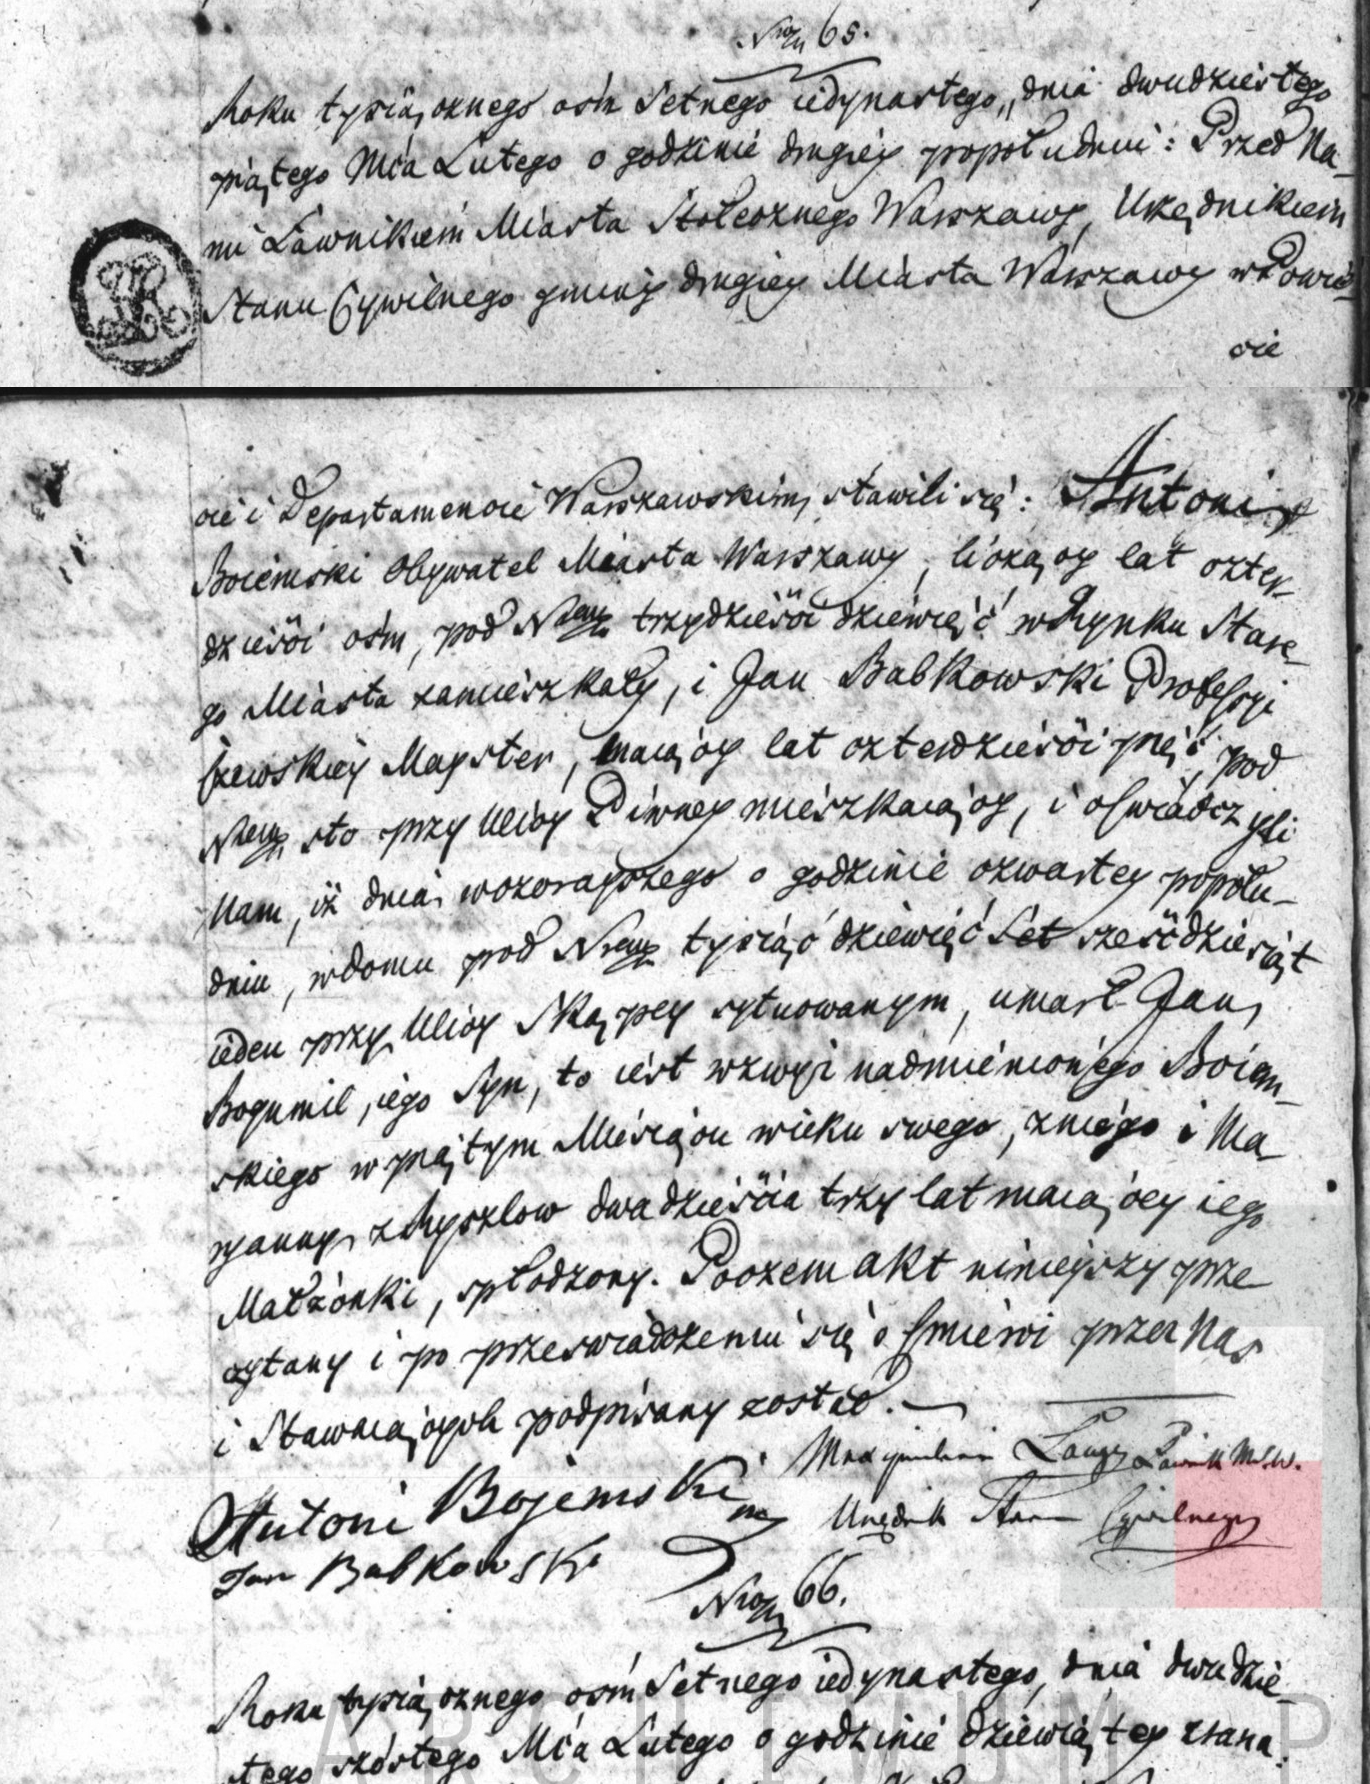 Nro 65.
Roku tysiącznego osm Setnego iedynastego, dnia dwudziestego
piątego Mca Lutego o godzinie drugiey popołudniu: Przed Na-
mi Ławnikiem Miasta Stołecznego Warszawy, Urzędnikiem
Stanu Cywilnego gminy drugiey Miasta Warszawy w Powie-
cie
cie i Departamencie Warszawskim, stawili się: Antoni
Boiemski Obywatel Miasta Warszawy, liczący lat czter-
dzieści osm, pod Nrem trzydzieści dziewięć w Rynku Stare-
go Miasta zamieszkały, i Jan Babkowski Professyi
Szewskiey Mayster, maiący lat czterdzieści pięć, pod
Nrem sto przy Ulicy Piwney mieszkaiący, i oświadczyli
Nam, iż dnia wczorayszego o godzinie czwartey popołu-
dniu, w domu pod Nrem tysiąc dziewięć Set sześćdziesiąt
ieden przy Ulicy Skąpey sytuowanym, umarł Jan
Bogumil, iego Syn, to iest wzwyż nadmienionego Boiem-
skiego w piątym Miesiącu wieku swego, z niego i Ma-
ryanny z Ryszlow dwadzieścia trzy lat maiącey iego
Małżonki, spłodzony. Poczem akt ninieyszy prze
czytany i po przeświadczeniu się o śmierci przez Nas
i Stawaiących podpisany został.
Maxymilian Ławnik M.S.W.
Antoni Bojemski Urzędnik Stanu Cywilnego
Jan Babkowski
Nro 66.
Roku tysiącznego osm Setnego iedynastego, dnia dwudzie-
stego szóstego Mca Lutego o godzinie dziewiątey zrana:
ARCHIWUM P